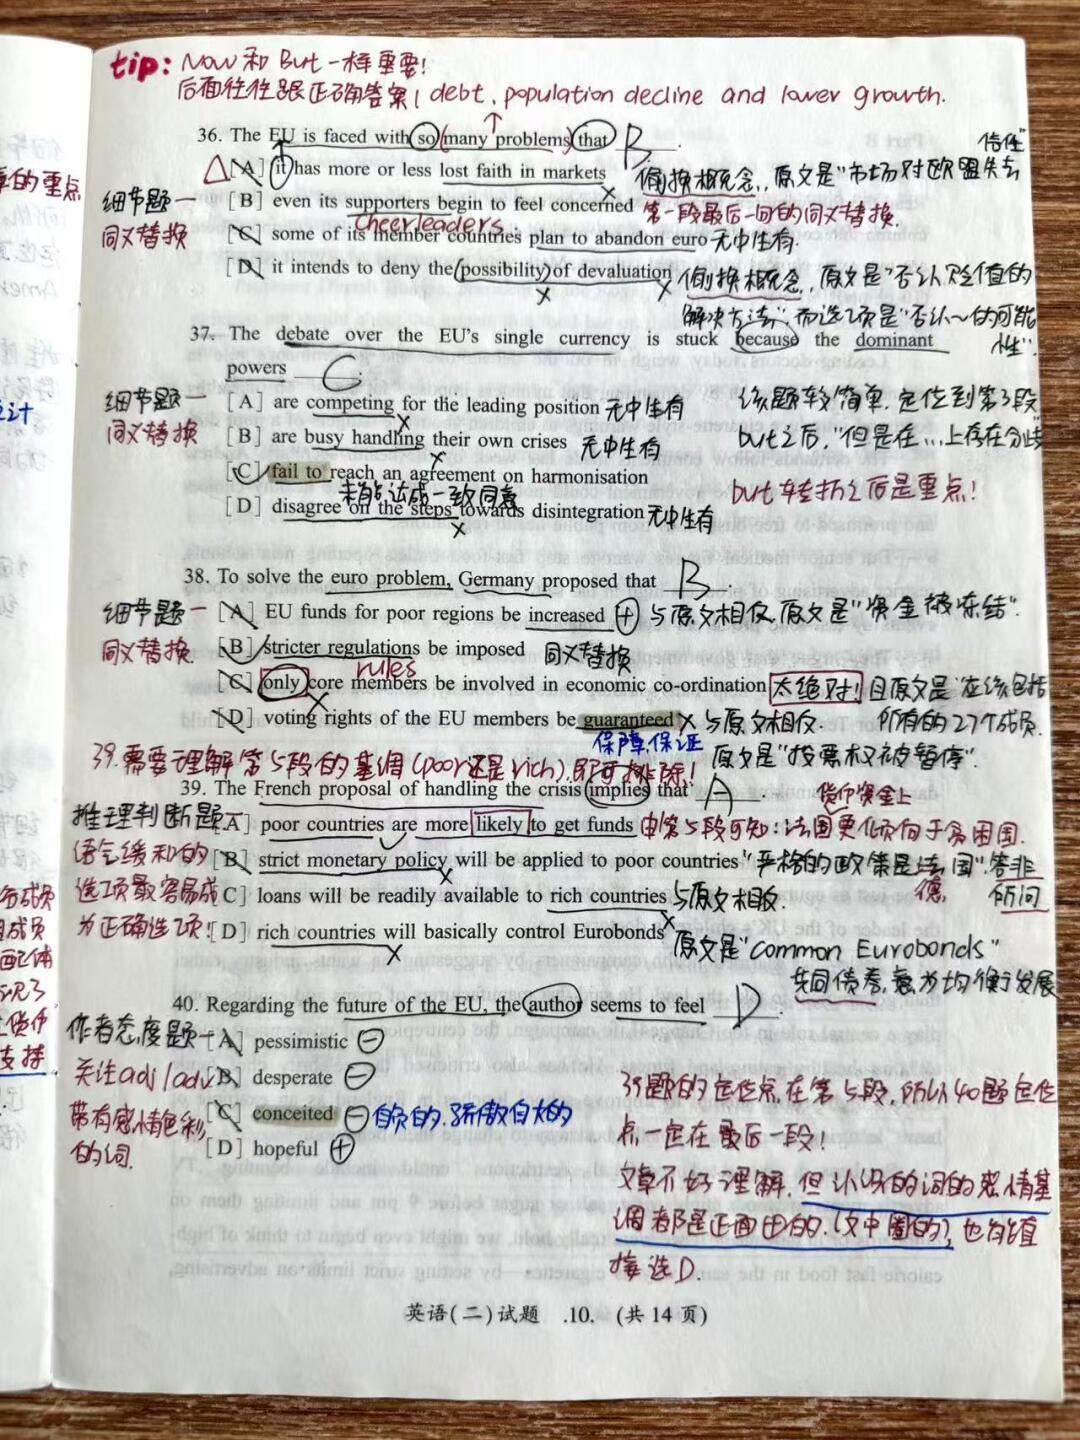 tip: Now 和 But 一样重要!
后面往往跟正确答案! debt, population decline and lower growth.
36. The EU is faced with so many problems that B .
[A] it has more or less lost faith in markets 偷换概念,原文是"市场对欧盟失去信任"
[B] even its supporters begin to feel concerned 第一段最后一句的同义替换.
cheerleaders
[C] some of its member countries plan to abandon euro 无中生有.
[D] it intends to deny the possibility of devaluation 偷换概念,原文是"否认贬值的
解决方法",而选项是"否认~的可能性".
细节题—
同义替换
37. The debate over the EU's single currency is stuck because the dominant
powers C .
[A] are competing for the leading position 无中生有
[B] are busy handling their own crises 无中生有
[C] fail to reach an agreement on harmonisation
未能达成一致同意
[D] disagree on the steps towards disintegration 无中生有
细节题—
同义替换
该题较简单,定位到第3段
but之后,"但是在...上存在分歧"
but转折之后是重点!
38. To solve the euro problem, Germany proposed that B .
[A] EU funds for poor regions be increased + 与原文相反,原文是"资金被冻结".
[B] stricter regulations be imposed 同义替换
rules
[C] only core members be involved in economic co-ordination 太绝对!且原文是"应该包括
所有的27个成员.
[D] voting rights of the EU members be guaranteed 与原文相反.
保障,保证 原文是"投票权被暂停".
细节题—
同义替换.
39.需要理解第5段的基调(poor还是rich),即可排除!
39. The French proposal of handling the crisis implies that A .
[A] poor countries are more likely to get funds 由第5段可知:法国更倾向于贫困国.
货币资金上
[B] strict monetary policy will be applied to poor countries "严格的政策是法国".答非所问
德,
[C] loans will be readily available to rich countries 与原文相反.
[D] rich countries will basically control Eurobonds 原文是"common Eurobonds"
共同债券,意为均衡发展
推理判断题—
语气缓和的
选项最容易成
为正确选项!
40. Regarding the future of the EU, the author seems to feel D .
[A] pessimistic −
[B] desperate −
[C] conceited − 自负的,骄傲自大的
[D] hopeful +
作者态度题—
关注adj/adv
带有感情色彩
的词.
39题的定位点在第5段,所以40题定位
点一定在最后一段!
文章不好理解,但认识的词的感情基
调都是正面+的.(文中圈的),也可直
接选D.
英语(二)试题 .10. (共14页)